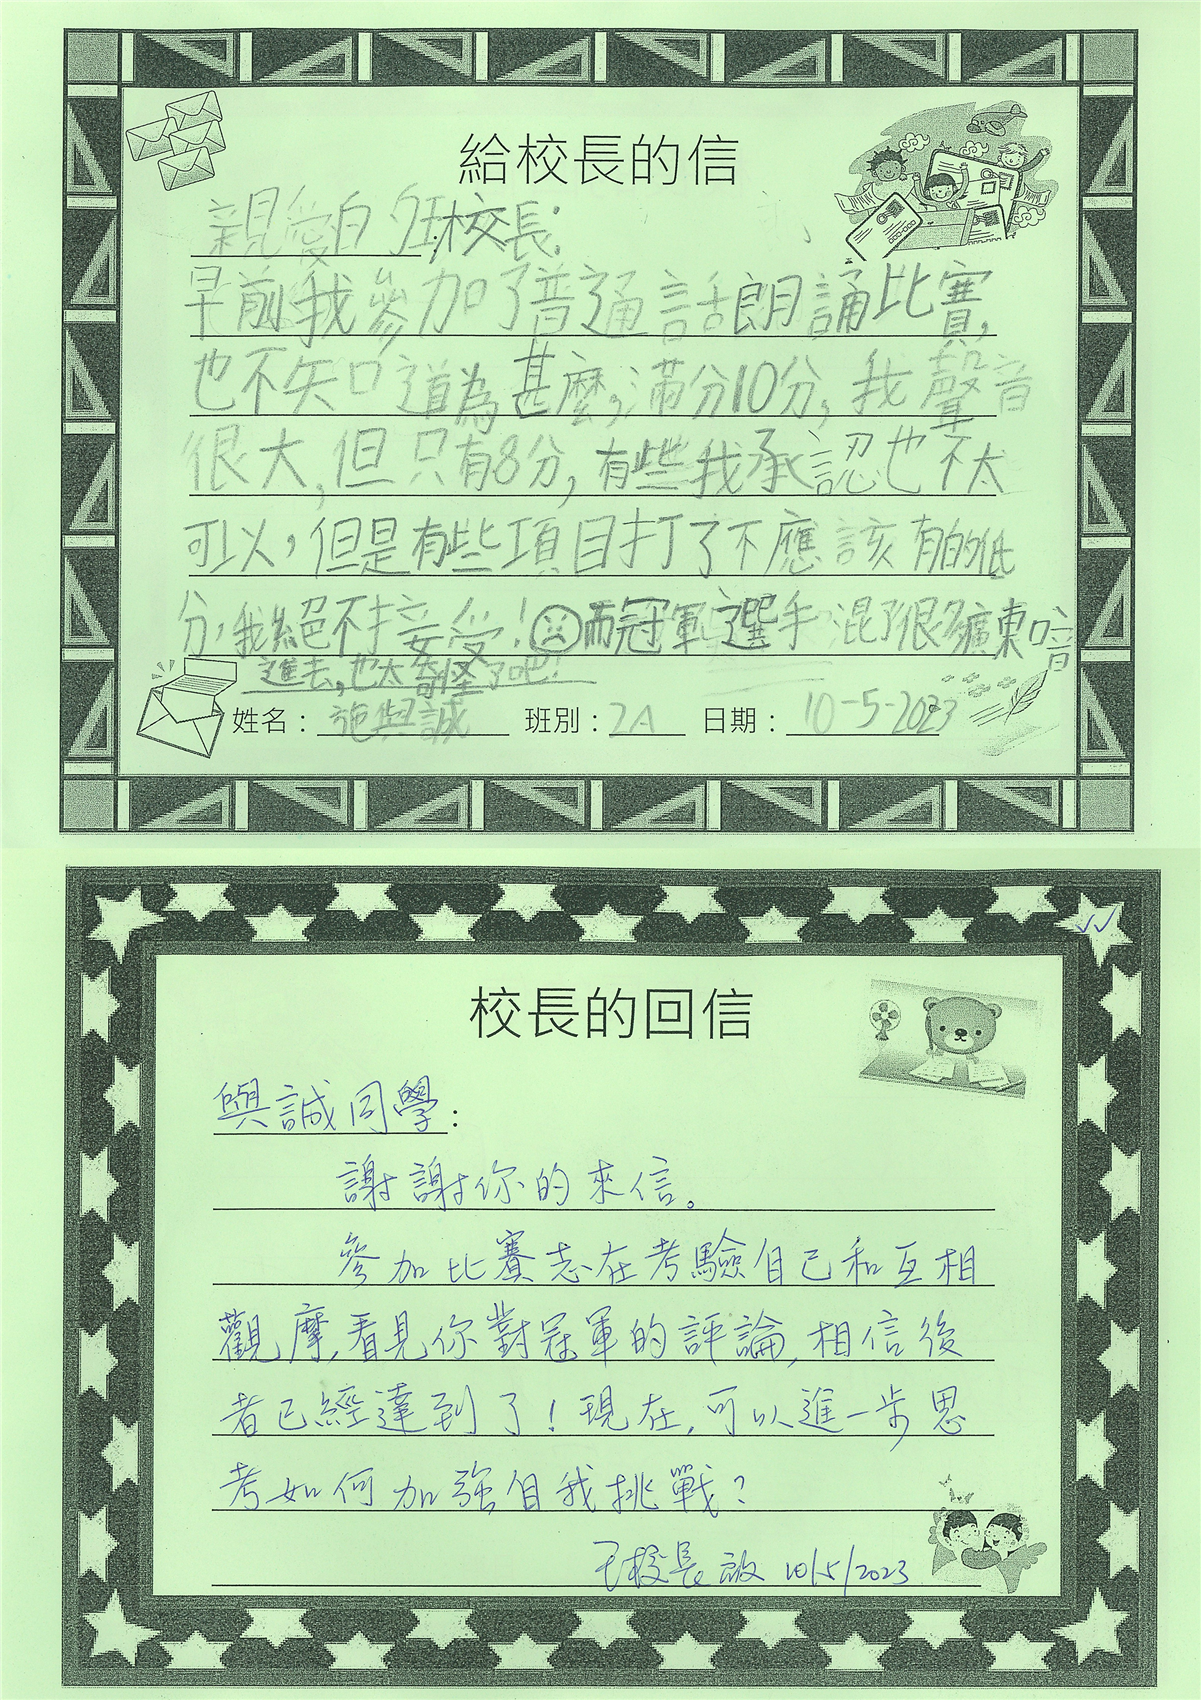 給校長的信
親愛的班校長：
早前我參加了普通話朗誦比賽，
也不知道為甚麼，滿分10分，我聲音
很大，但只有8分，有些我承認也不太
可以，但是有些項目打了不應該有的低
分，我絕不接受！而冠軍選手混了很多廣東音
進去，也太奇怪了吧！
姓名：施與誠 班別：2A 日期：10-5-2023
校長的回信
與誠同學：
謝謝你的來信。
參加比賽志在考驗自己和互相
觀摩，看見你對冠軍的評論，相信後
者已經達到了！現在，可以進一步思
考如何加強自我挑戰？
王校長啟 10/5/2023